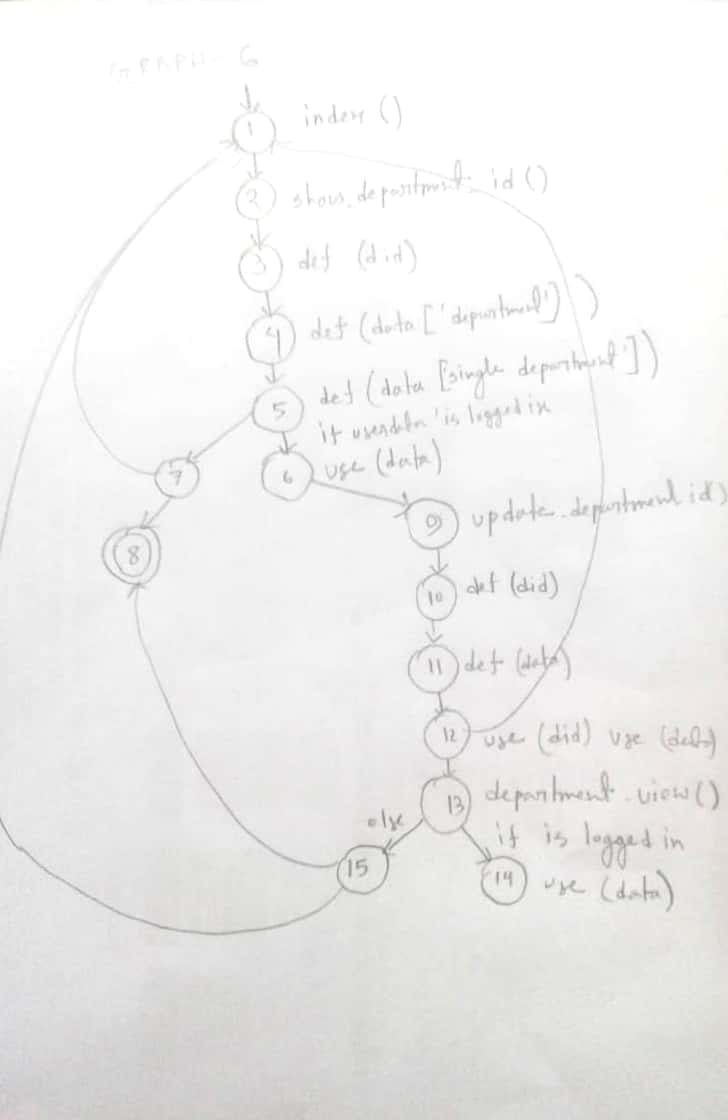 GRAPH - G
1 index ()
2 show_department_id ()
3 def (did)
4 def (data ['department'])
5 def (data [single department'])
if userdata 'is logged in
7 6 use (data)
9 update_department id)
8
10 def (did)
11 def (data)
12 use (did) use (data)
13 department_view()
else
if is logged in
15 14 use (data)